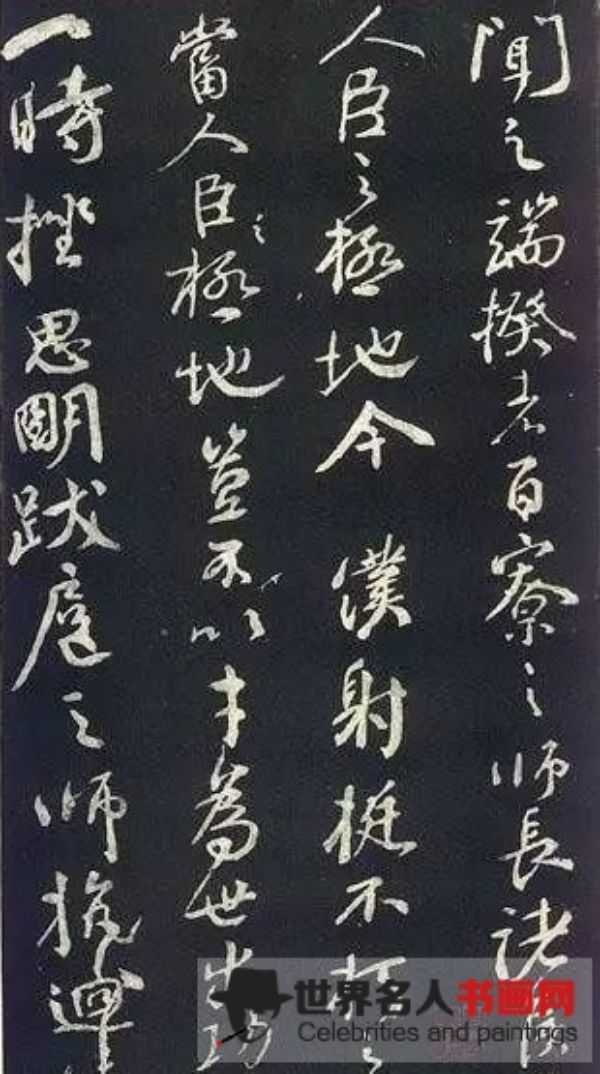 聞之端揆者百寮之師長諸侯
人臣之極地今僕射挺不朽之
當人臣之極地豈不以才為世出功
一時挫思明跋扈之師抗迴
世界名人书画网
Celebrities and paintings